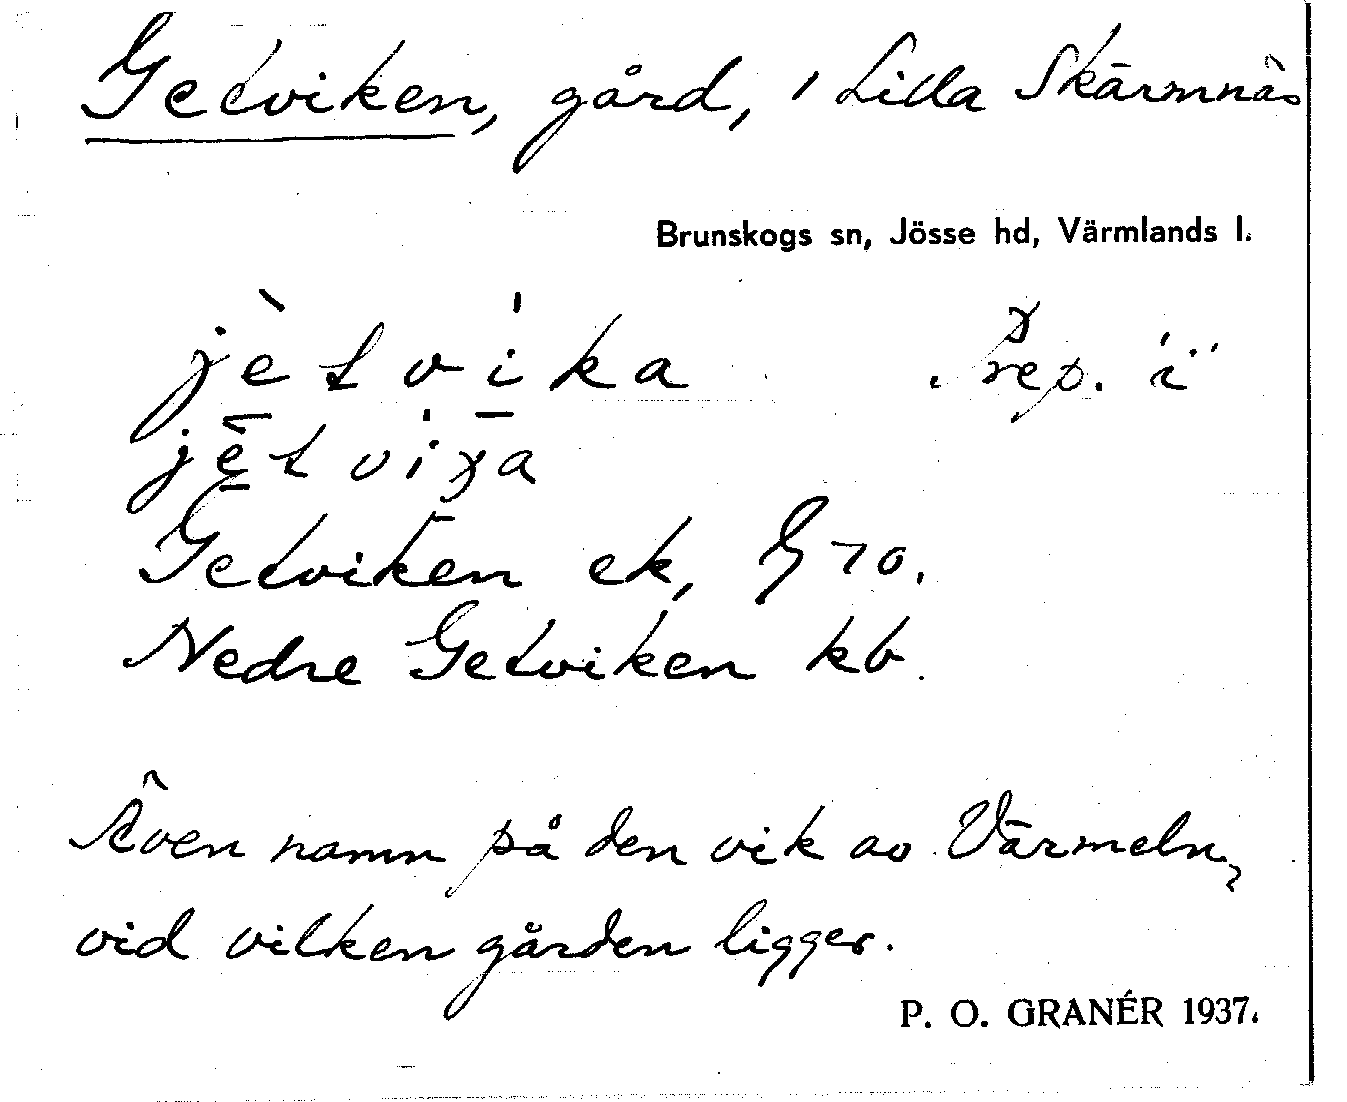 Getviken, gård, i Lilla Skärmnäs
Brunskogs sn, Jösse hd, Värmlands l.
jètvika Prep. "i"
jètviɤa
Getviken ek, G 70.
Nedre Getviken kb.
Även namn på den vik av Värmeln,
vid vilken gården ligger.
P. O. GRANÉR 1937.